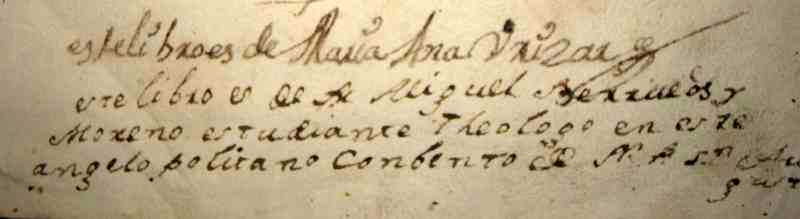 este libro es de Maria Ana Vrizar
este libro es de fr Miguel Berruecos y
Moreno estudiante Theologo en este
angelopolitano Conbento de N. P. Sn Au
gust